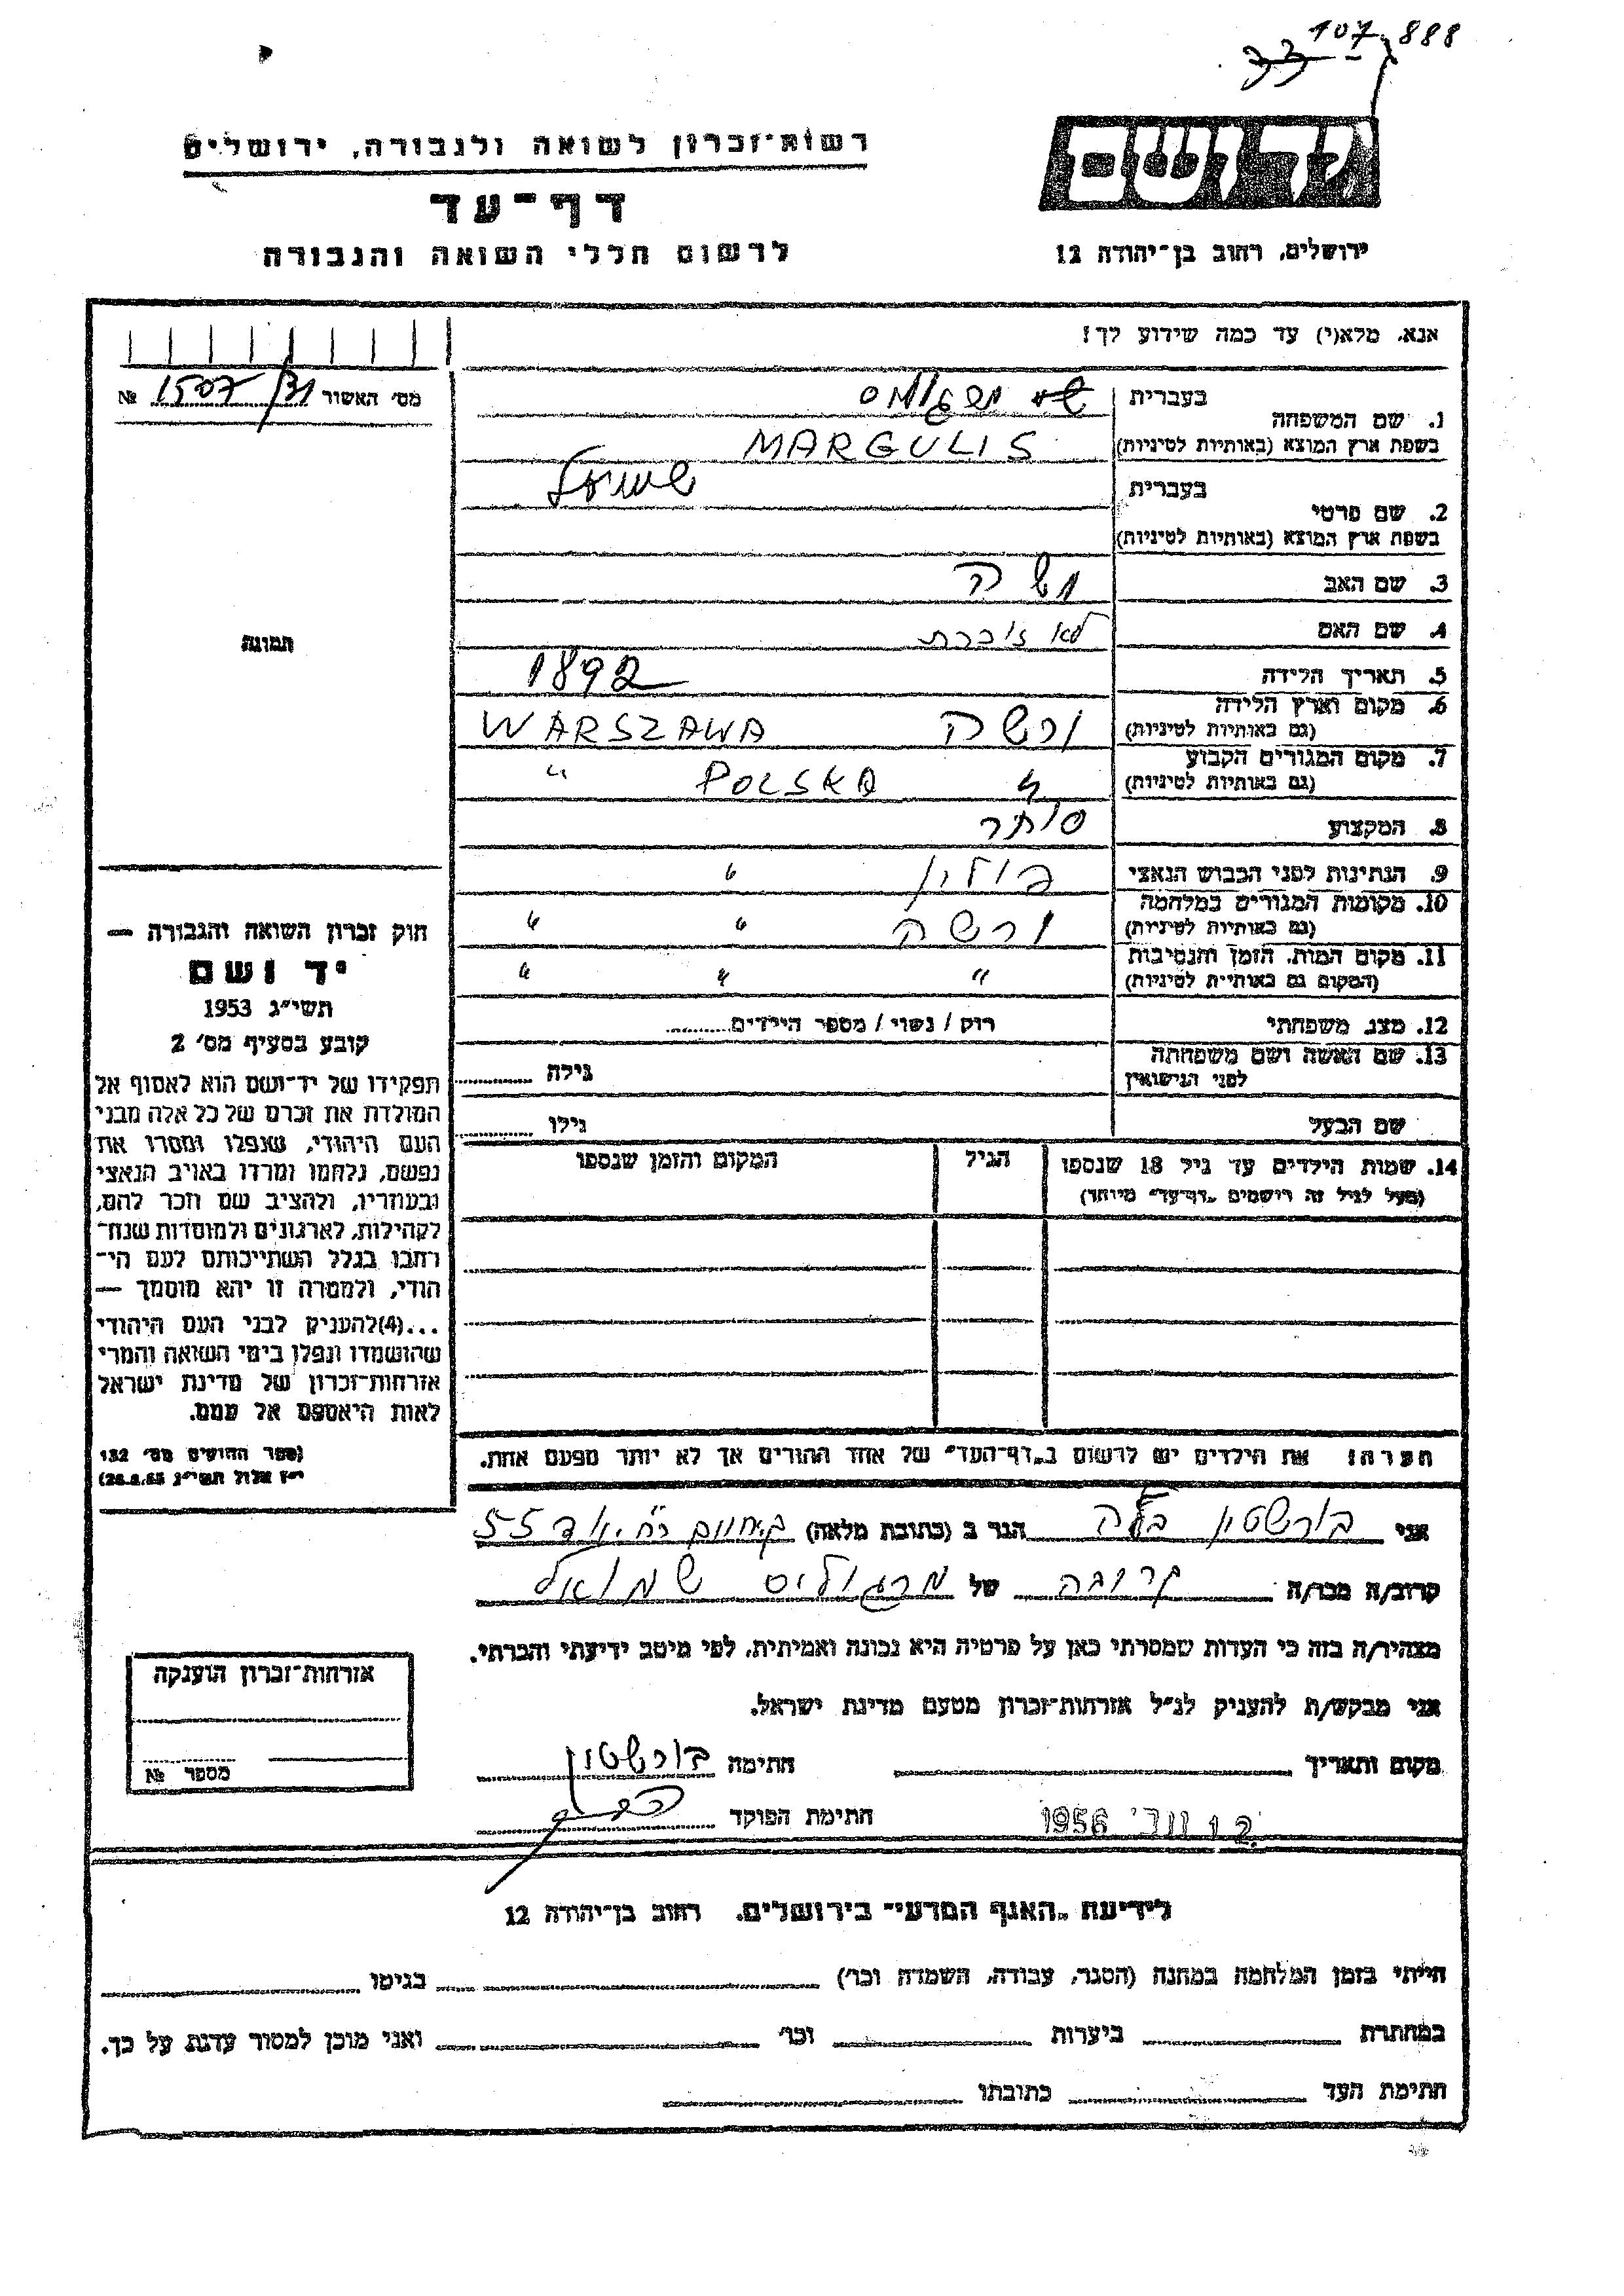 107.888
רשות־זכרון לשואה ולגבורה, ירושלים
דף־עד
לרשום חללי השואה והגבורה
יד ושם
ירושלים, רחוב בן־יהודה 12
אנא, מלא(י) עד כמה שידוע לך!
מס' האשור 1507/31 №
תמונה
1. שם המשפחה
בעברית
בשפת ארץ המוצא (באותיות לטיניות) MARGULIS
2. שם פרטי
בעברית שמואל
בשפת ארץ המוצא (באותיות לטיניות)
3. שם האב משה
4. שם האם לא זוכרת
5. תאריך הלידה 1892
6. מקום וארץ הלידה ורשה WARSZAWA
(גם באותיות לטיניות)
7. מקום המגורים הקבוע " POLSKA "
(גם באותיות לטיניות)
8. המקצוע סוחר
9. הנתינות לפני הכבוש הנאצי פולין "
10. מקומות המגורים במלחמה ורשה " "
(גם באותיות לטיניות)
11. מקום המות, הזמן והנסיבות " " "
(המקום גם באותיות לטיניות)
12. מצב משפחתי רוק / נשוי / מספר הילדים
13. שם האשה ושם משפחתה גילה
לפני הנישואין
שם הבעל גילו
14. שמות הילדים עד גיל 18 שנספו הגיל המקום והזמן שנספו
(מעל לגיל זה רושמים "דף־עד" מיוחד)
הערה: את הילדים יש לרשום ב"דף־העד" של אחד ההורים אך לא יותר מפעם אחת.
חוק זכרון השואה והגבורה —
יד ושם
תשי"ג 1953
קובע בסעיף מס' 2
תפקידו של יד־ושם הוא לאסוף אל
המולדת את זכרם של כל אלה מבני
העם היהודי, שנפלו ומסרו את
נפשם, נלחמו ומרדו באויב הנאצי
ובעוזריו, ולהציב שם וזכר להם,
לקהילות, לארגונים ולמוסדות שנח־
רבו בגלל השתייכותם לעם הי־
הודי, ולמטרה זו יהא מוסמך —
...(4)להעניק לבני העם היהודי
שהושמדו ונפלו בימי השואה והמרי
אזרחות־זכרון של מדינת ישראל
לאות היאספם אל עמם.
(ספר החוקים מס' 132
י"ז אלול תשי"ג 28.8.53)
אני בורשטין בלה הגר ב (כתובת מלאה)
קרוב/ה מכר/ה קרובה של מרגוליס שמואל
מצהיר/ה בזה כי העדות שמסרתי כאן על פרטיה היא נכונה ואמיתית, לפי מיטב ידיעתי והכרתי.
אני מבקש/ת להעניק לנ"ל אזרחות־זכרון מטעם מדינת ישראל.
מקום ותאריך חתימה בורשטין
חתימת הפוקד
אזרחות־זכרון הוענקה
מספר №
לידיעת "האגף המדעי" בירושלים, רחוב בן־יהודה 12
הייתי בזמן המלחמה במחנה (הסגר, עבודה, השמדה וכו') בגיטו
במחתרת ביערות וכו' ואני מוכן למסור עדות על כך.
חתימת העד כתובתו